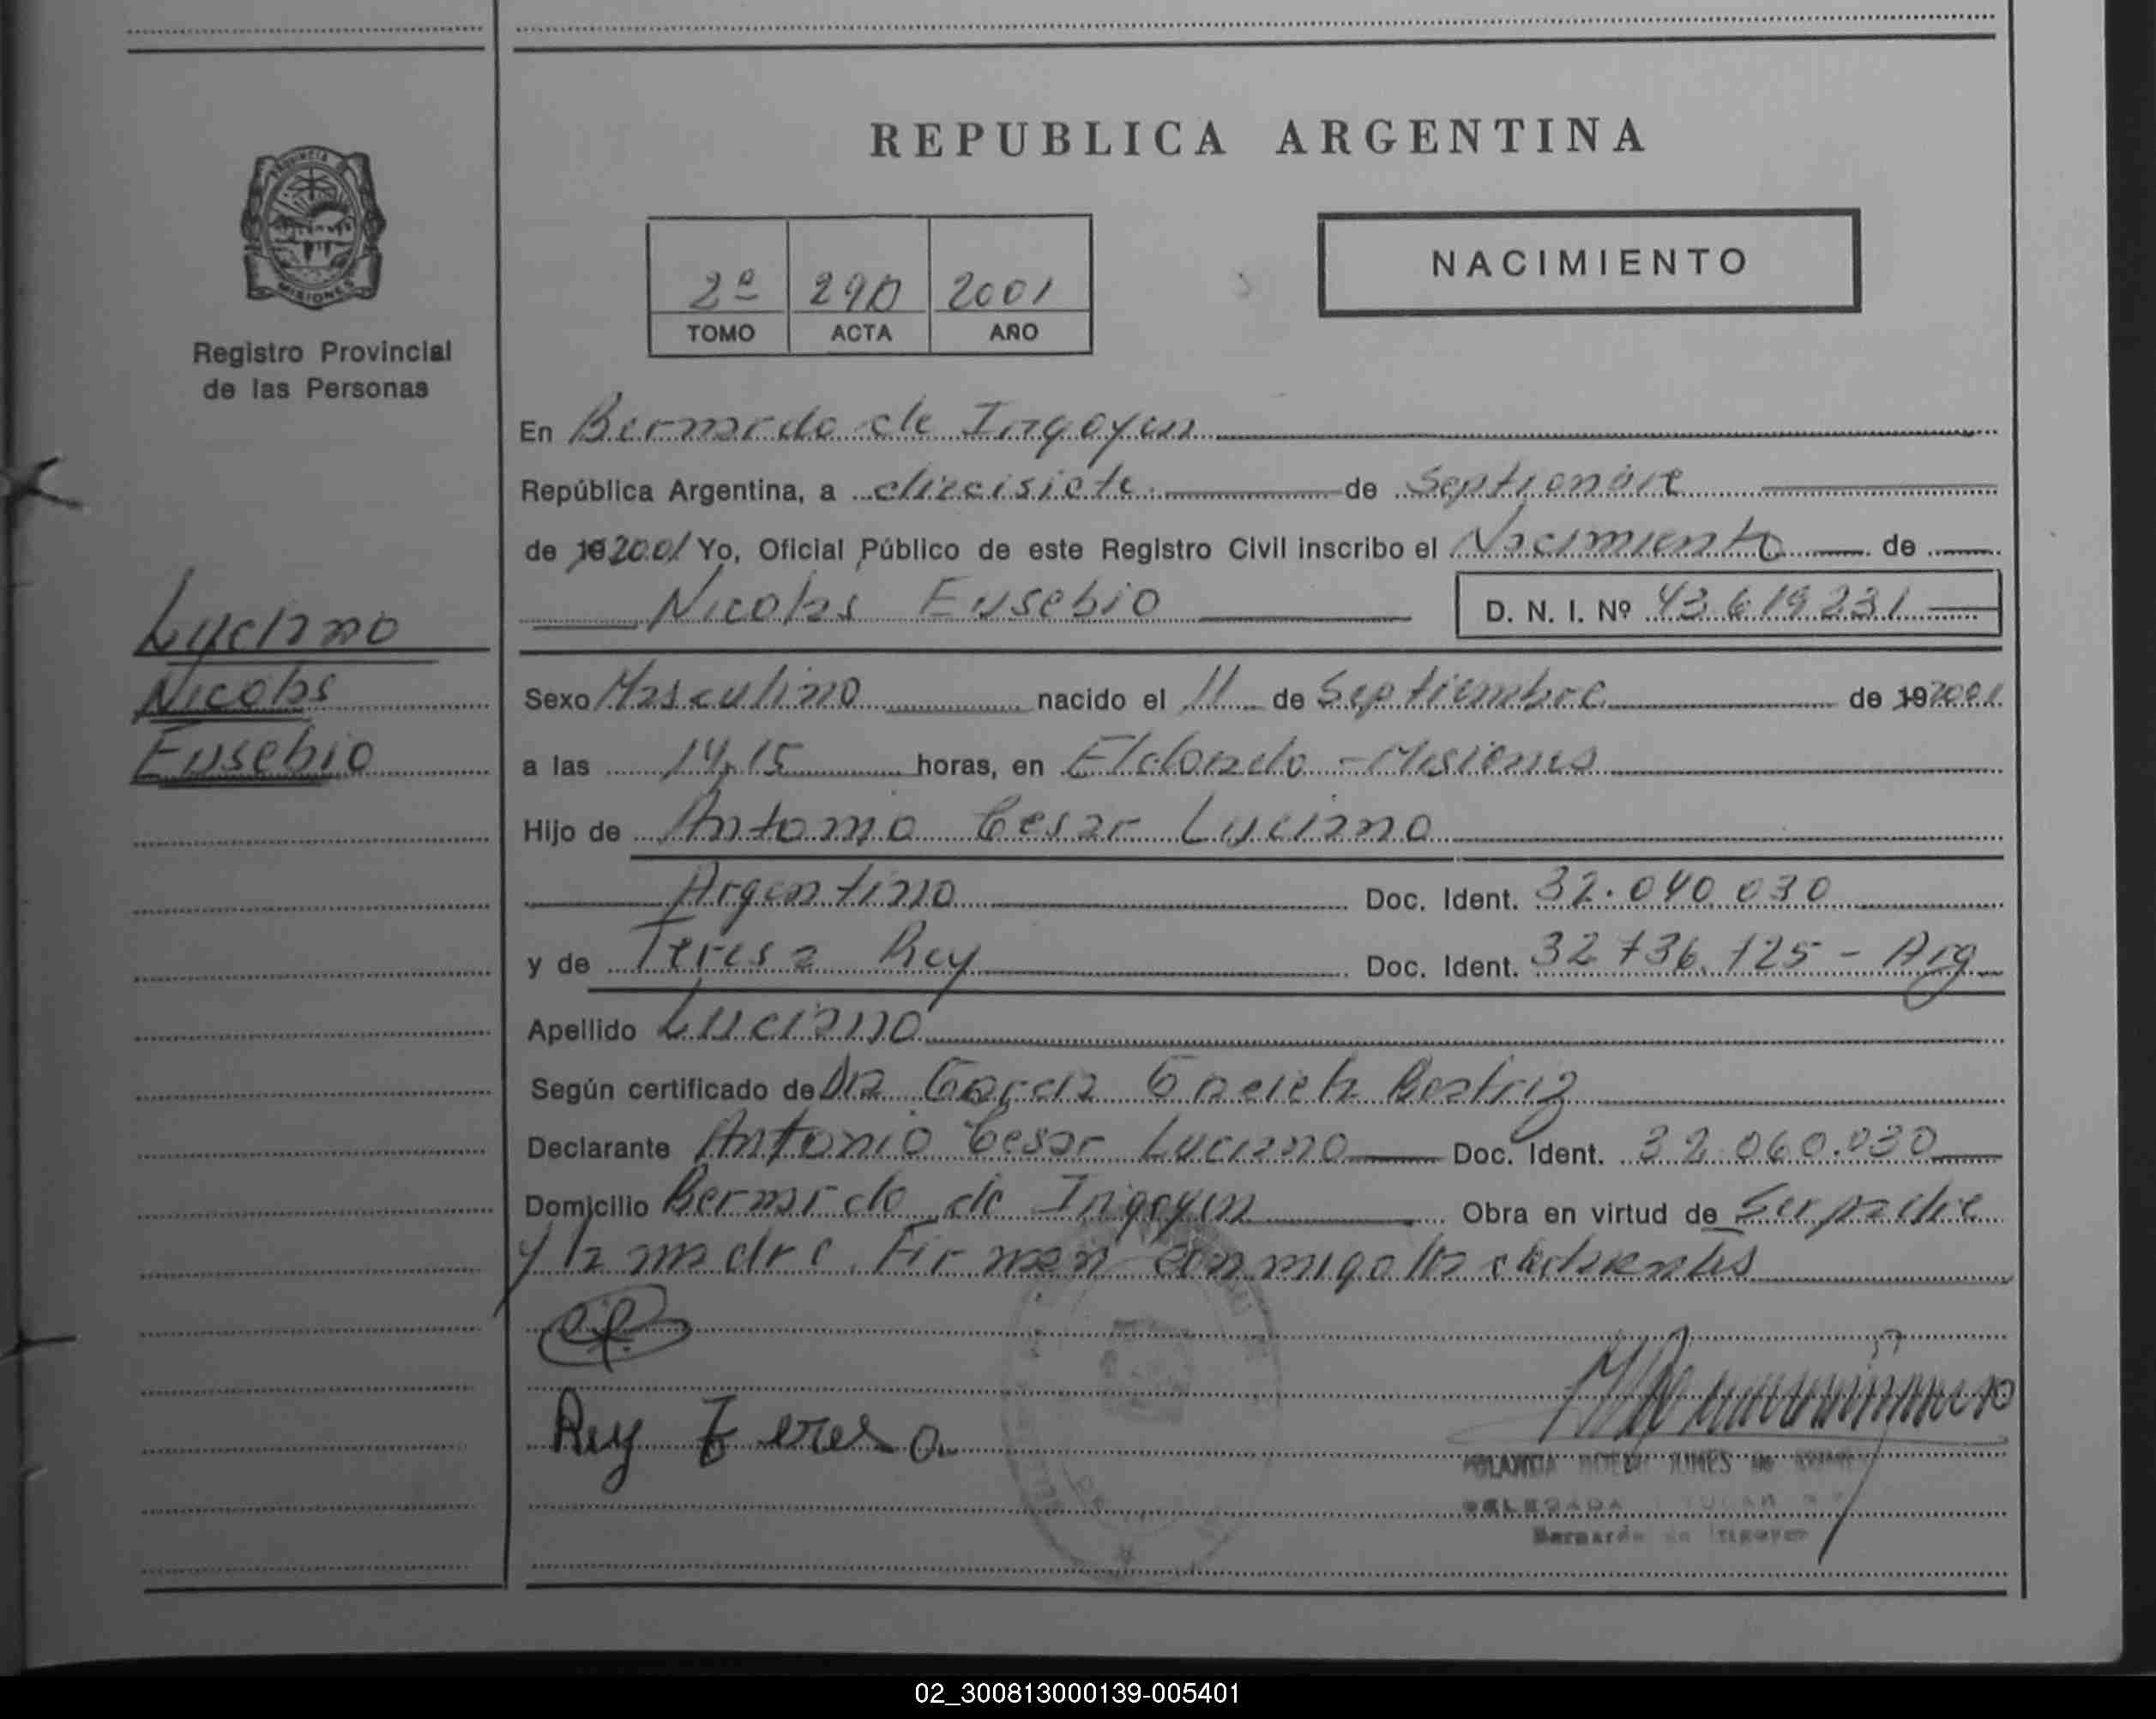 REPUBLICA ARGENTINA
PROVINCIA DE
MISIONES
Registro Provincial
de las Personas
2º 290 2001
TOMO ACTA AÑO
NACIMIENTO
En Bernardo de Irigoyen
República Argentina, a diecisiete de Septiembre
de 19 2001 Yo, Oficial Público de este Registro Civil inscribo el Nacimiento de
Nicolas Eusebio D. N. I. Nº 43.619.231
Luciano
Nicolas
Eusebio
Sexo Masculino nacido el 11 de Septiembre de 19 2001
a las 14,15 horas, en Eldorado - Misiones
Hijo de Antonio Cesar Luciano
Argentino Doc. Ident. 32.040.030
y de Teresa Rey Doc. Ident. 32 736.125 - Arg
Apellido Luciano
Según certificado de Dra Garcia Beatriz
Declarante Antonio Cesar Luciano Doc. Ident. 32.060.030
Domicilio Bernardo de Irigoyen Obra en virtud de Ser padre
y la madre. Firman conmigo los
Rey Teresa
DELEGADA
Bernardo de Irigoyen
02_300813000139-005401